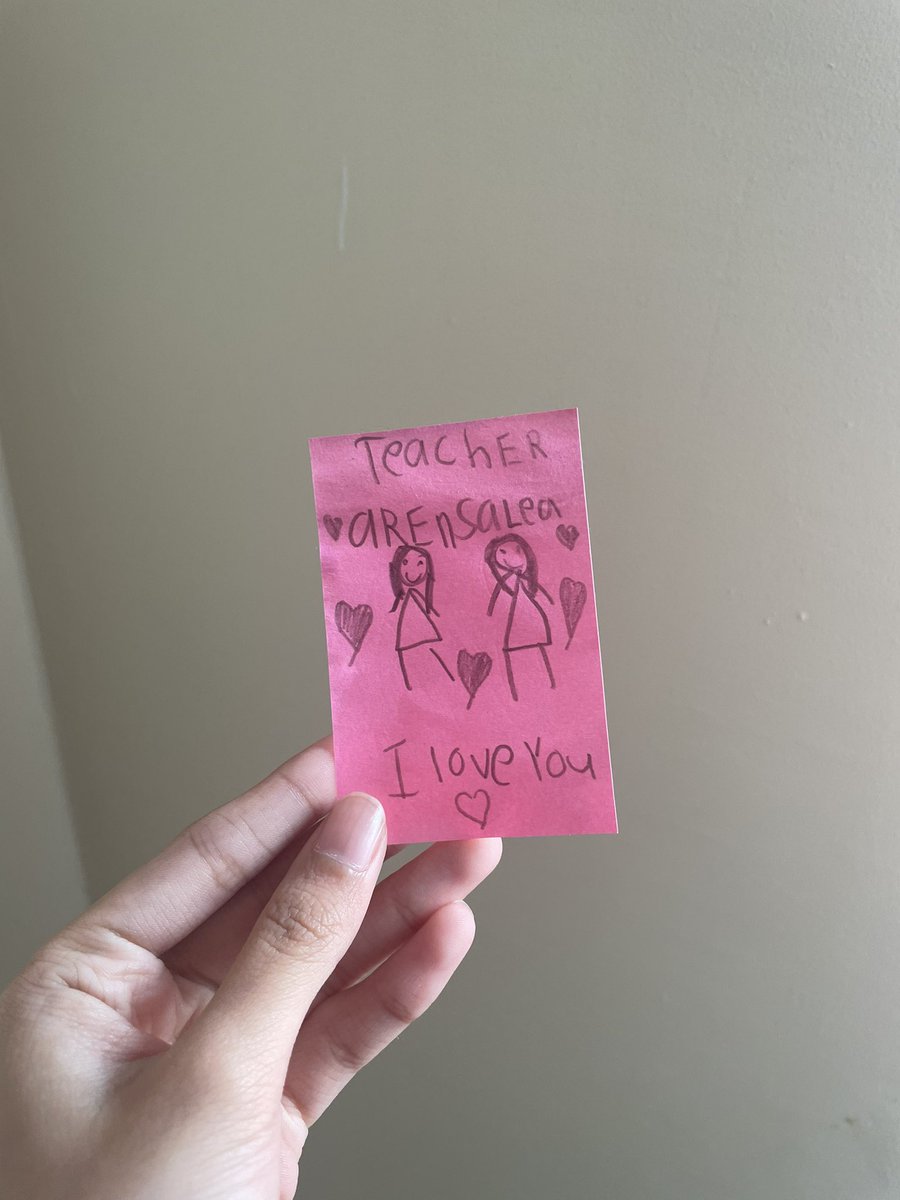 TeacHER
aREnSaLea
I love You